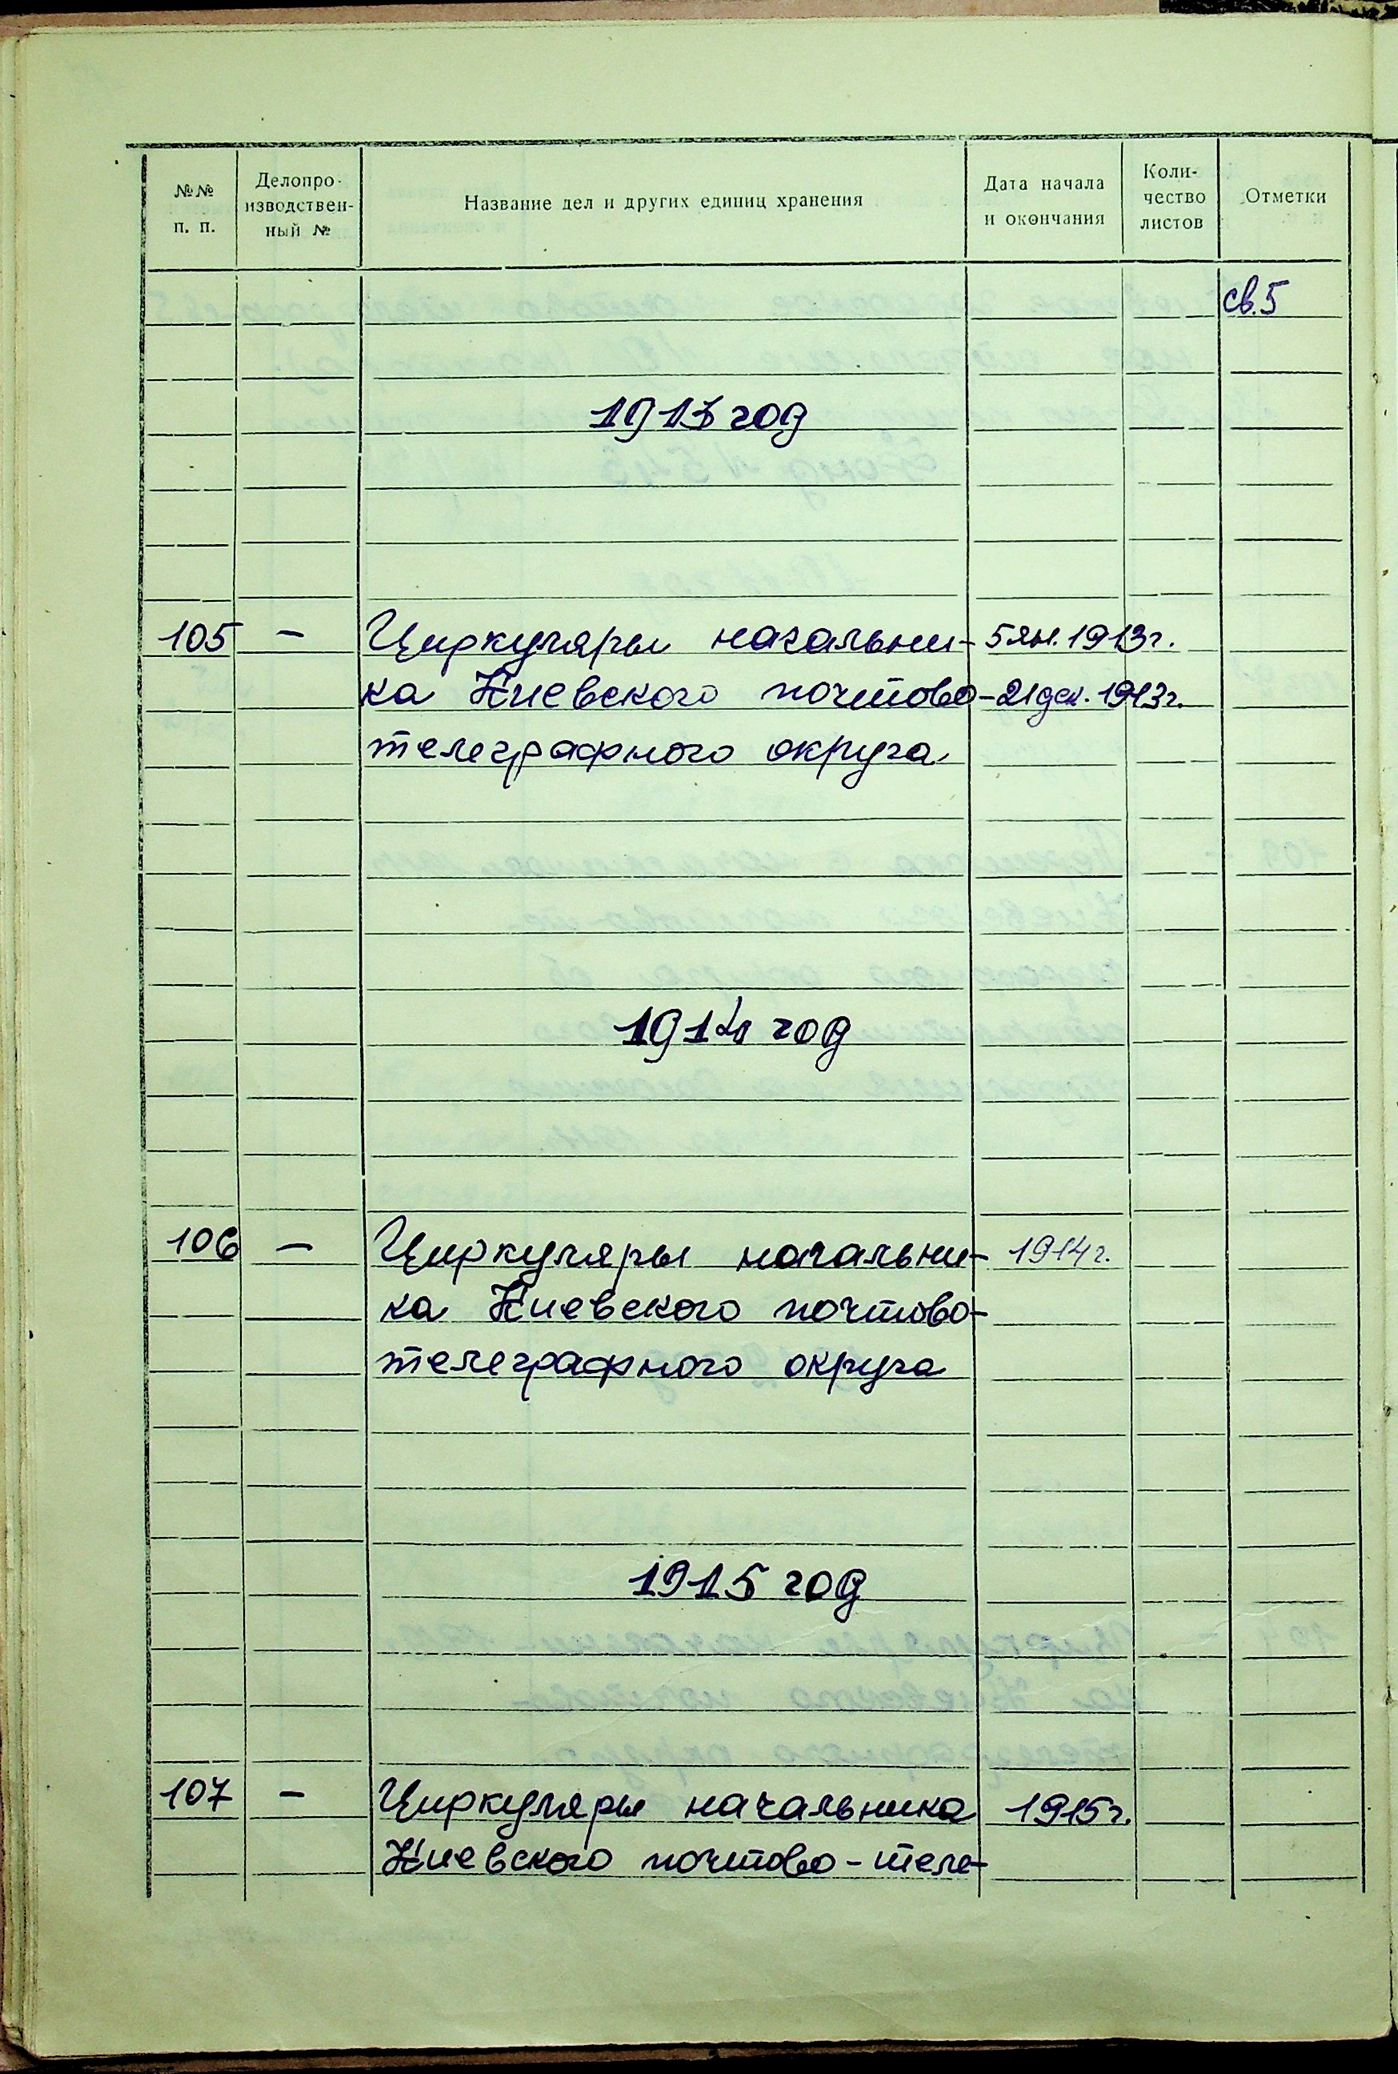 №№ п. п.
Делопро-
изводствен-
ный №
Название дел и других единиц хранения
Дата начала
и окончания
Коли-
чество
листов
Отметки
св.5
1913 год
105 – Циркуляры начальни- 5 ян. 1913 г.
ка Киевского почтово- 21 дек. 1913 г.
телеграфного округа
1914 год
106 – Циркуляры начальни- 1914 г.
ка Киевского почтово-
телеграфного округа
1915 год
107 – Циркуляры начальника 1915 г.
Киевского почтово-теле-